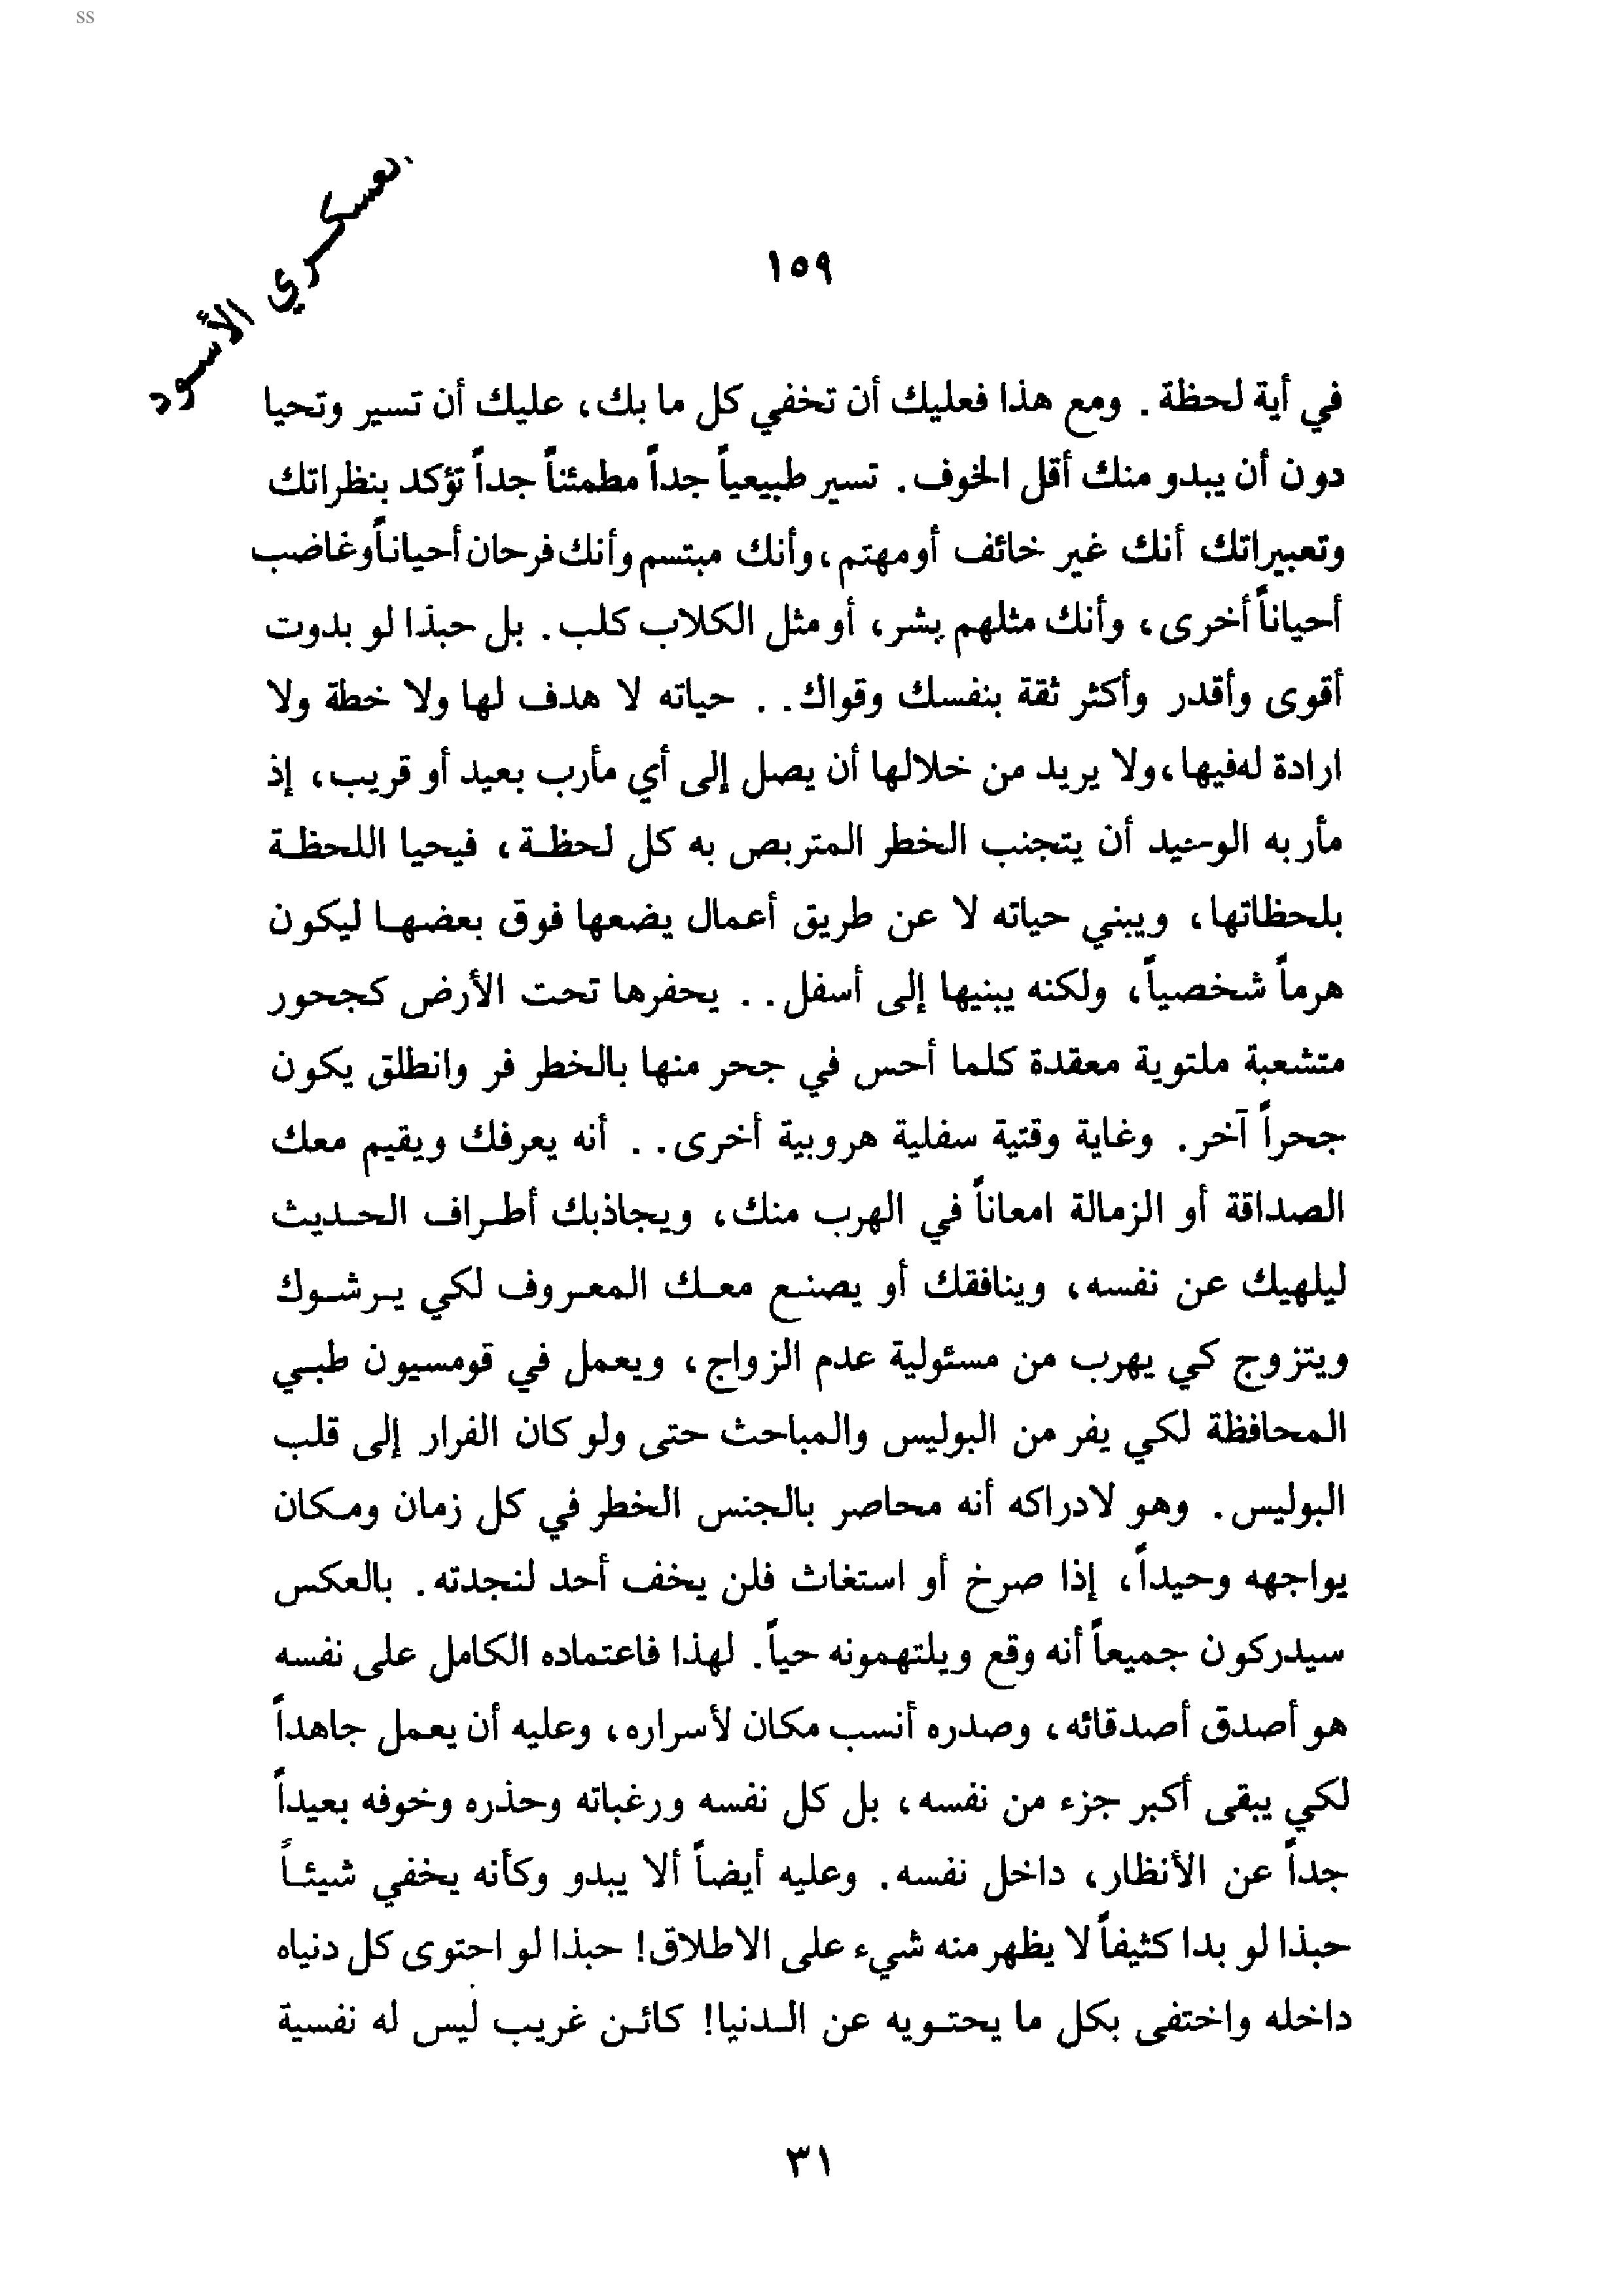 ss
العسكري الأسود
١٥٩
في أية لحظة . ومع هذا فعليك أن تخفي كل ما بك، عليك أن تسير وتحيا
دون أن يبدو منك أقل الخوف. تسير طبيعياً جداً مطمئناً جداً تؤكد بنظراتك
وتعبيراتك أنك غير خائف أو مهتم، وأنك مبتسم وأنك فرحان أحياناً وغاضب
أحياناً أخرى، وأنك مثلهم بشر، أو مثل الكلاب كلب. بل حبذا لو بدوت
أقوى وأقدر وأكثر ثقة بنفسك وقواك. . حياته لا هدف لها ولا خطة ولا
ارادة له فيها، ولا يريد من خلالها أن يصل إلى أي مأرب بعيد أو قريب، إذ
مأربه الوحيد أن يتجنب الخطر المتربص به كل لحظة، فيحيا اللحظة
بلحظاتها، ويبني حياته لا عن طريق أعمال يضعها فوق بعضها ليكون
هرماً شخصياً، ولكنه يبنيها إلى أسفل. . يحفرها تحت الأرض كجحور
متشعبة ملتوية معقدة كلما أحس في جحر منها بالخطر فر وانطلق يكون
جحراً آخر. وغاية وقتية سفلية هروبية أخرى. . أنه يعرفك ويقيم معك
الصداقة أو الزمالة امعاناً في الهرب منك، ويجاذبك أطراف الحديث
ليلهيك عن نفسه، وينافقك أو يصنع معك المعروف لكي يرشوك
ويتزوج كي يهرب من مسئولية عدم الزواج، ويعمل في قومسيون طبي
المحافظة لكي يفر من البوليس والمباحث حتى ولو كان الفرار إلى قلب
البوليس. وهو لادراكه أنه محاصر بالجنس الخطر في كل زمان ومكان
يواجهه وحيداً، إذا صرخ أو استغاث فلن يخف أحد لنجدته. بالعكس
سيدركون جميعاً أنه وقع ويلتهمونه حياً. لهذا فاعتماده الكامل على نفسه
هو أصدق أصدقائه، وصدره أنسب مكان لأسراره، وعليه أن يعمل جاهداً
لكي يبقى أكبر جزء من نفسه، بل كل نفسه ورغباته وحذره وخوفه بعيداً
جداً عن الأنظار، داخل نفسه. وعليه أيضاً ألا يبدو وكأنه يخفي شيئاً
حبذا لو بدا كثيفاً لا يظهر منه شيء على الاطلاق! حبذا لو احتوى كل دنياه
داخله واختفى بكل ما يحتويه عن الدنيا! كائن غريب ليس له نفسية
٣١